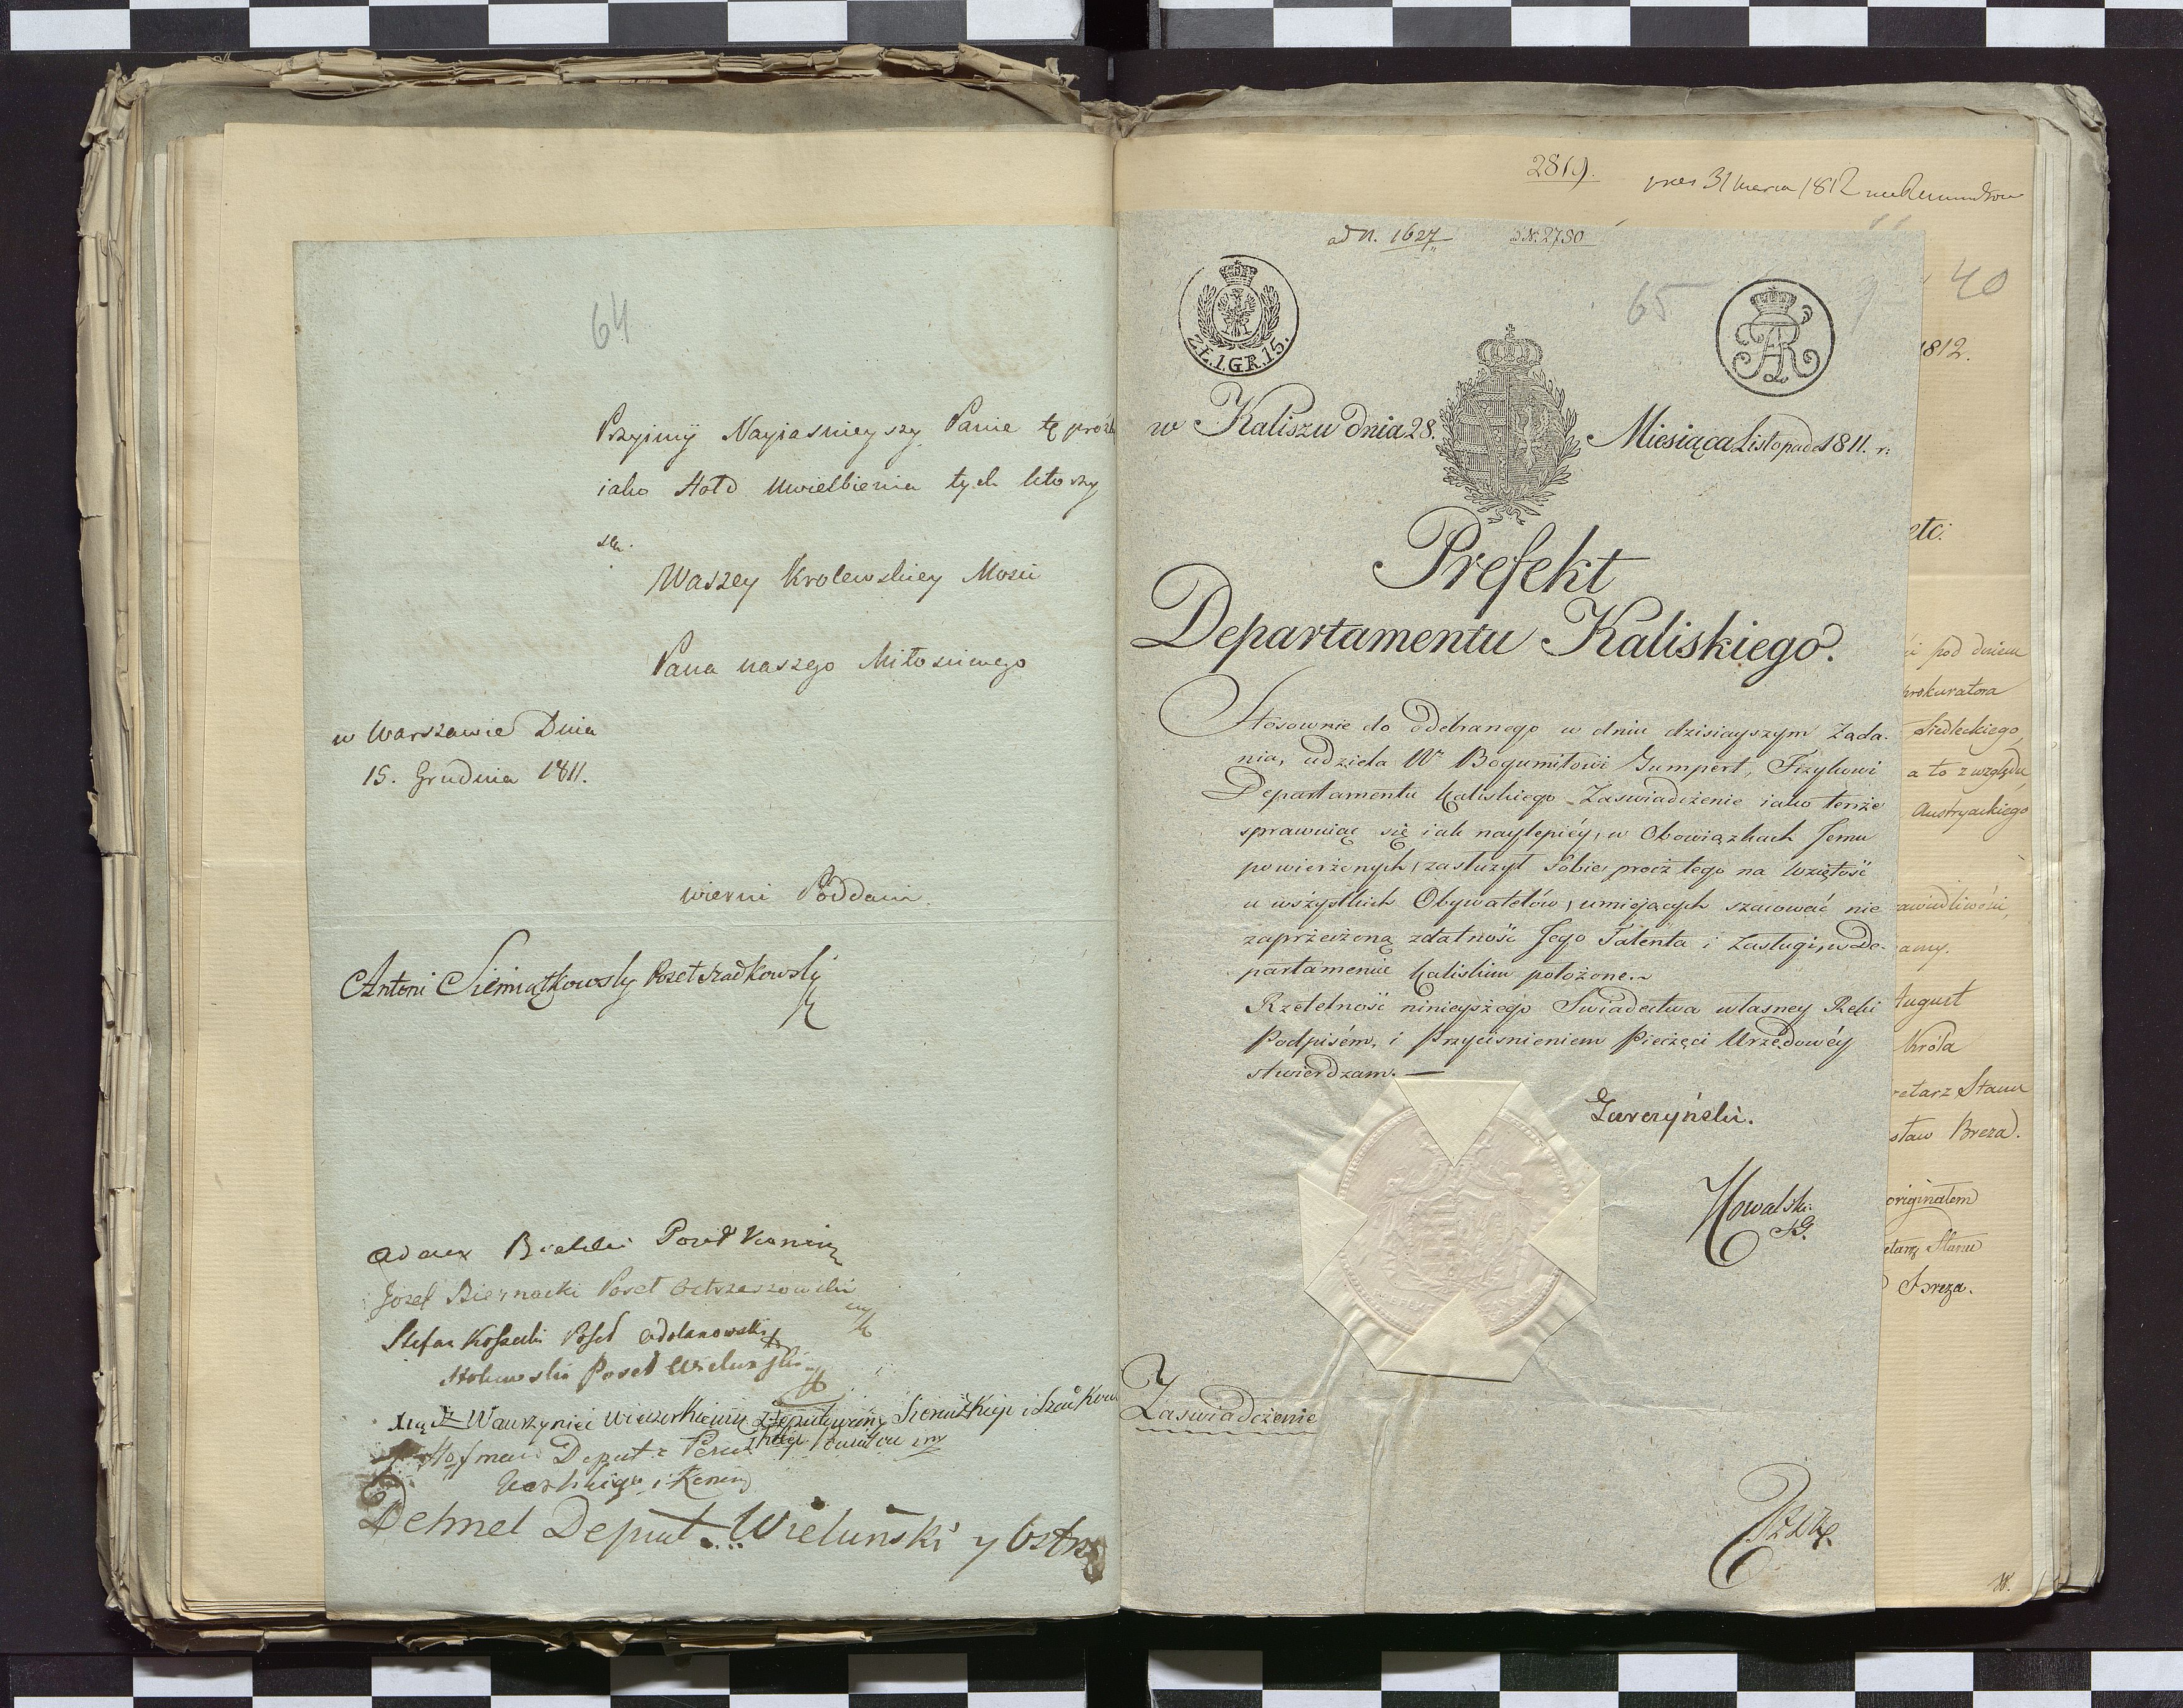 64
Przyimij Nayiasnieyszy Panie tę proźb
iako Hołd Uwielbienia tych ktorzy
są.
Waszey Krolewskiey Mości
Pana naszego Miłosciwego
w Warszawie Dnia
15. Grudnia 1811.
wierni Poddani
Antoni Siemiątkowsky Poseł Szadkowsky
Adam Bialecki Poseł Koninsk
Jozef Biernacki Poseł Ostrzeszowski
Stefan Poseł Odolanowski
Poseł Wielunski
Xiądz Wawrzyniec Deputowany Sieradzkiego i Szadkow
skiego Powiatow
Hofman Deput: z Powiat
i Konin
Dehnel Deput. Wieluński y Ostrz
2819.
31 marca 1812
ad N. 1627
ad N. 2750
65
9
40
ZŁ.1.GR.15.
FAR
1812.
w Kaliszu dnia 28.
Miesiąca Listopada 1811. r:
etc:
Prefekt
Departamentu Kaliskiego.
Stosownie do Odebranego w dniu dzisieyszym Żąda-
nia, udziela Wu Bogumiłowi Gumpert, Fizykowi
Departamentu Kaliskiego Zaswiadczenie iako tenże
sprawuiąc się iak naylepiéy, w Obowiązkach Jemu
powierzonych, zasłużył Sobie, procz tego na Wziętość
u wszystkich Obywatelów, umiejących szacować nie
zaprzeczoną zdatność Jego Talenta i Zasługi, w De-
partamencie Kaliskim położone.~
Rzetelność ninieyszego Swiadectwa własney Ręki
Podpisém, i Przyciśnieniem Pieczęci Urzędowéy
stwierdzam.—
Garczyński.
Kowalski
SG.
Zaswiadczenie
pod dniem
prokuratora
Siedleckiego
a to z względu
Austryackiego
rawiedliwości,
amy.
August
Króla
retarz Stanu
sław Breza.
originałem
etarz Stanu
Breza.
W.